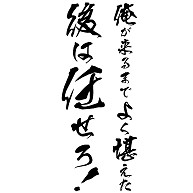 俺が来るまでよく堪えた
後は任せろ!